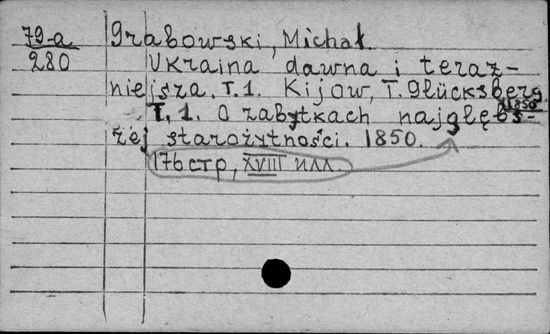 79-a
280
Grabowski, Michał.
Ukraina dawna i teraz-
niejsza. T. 1. Kijow, T. Glücksberg
1850
T. 1. O zabytkach najgłębs-
zej starożytności. 1850.
176 стр, XVIII илл.